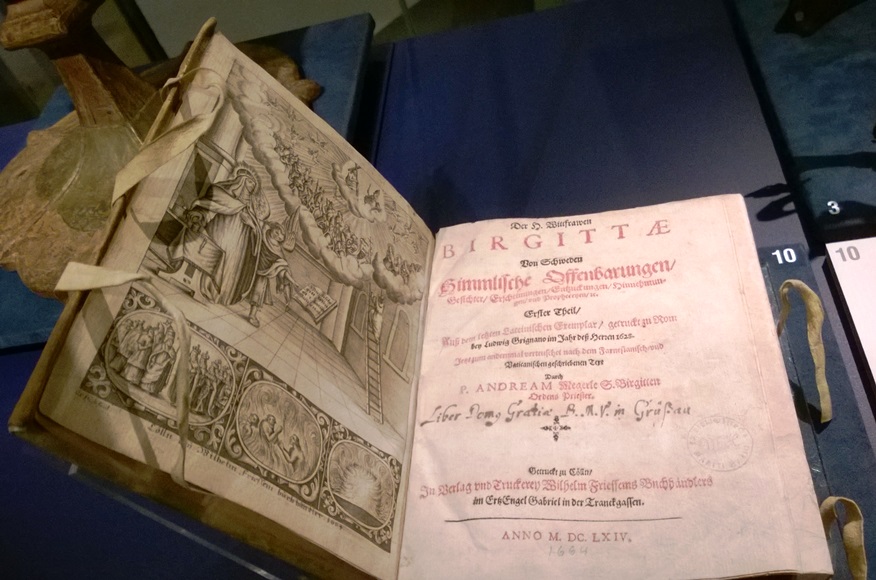 Der H. Wittfrawen
BIRGITTÆ
Von Schweden
Himmlische Offenbarungen/
Gesichter/ Erscheinungen/ Entzuckungen/
Erster Theil/
Auß dem letzten Lateinischen Exemplar/ getruckt zu Rom
bey Ludwig Grignano im Jahr deß Herren 1628.
Jetzt zum
Vaticanischen geschriebenen Text
Durch
P. ANDREAM Megerle S. Birgitten
Ordens Priester.
Liber Domg Gratiæ B. M. V. in Grüßau
Getruckt zu Cölln/
In Verlag vnd Truckerey Wilhelm Friessems Buchhändlers
im ErtzEngel Gabriel in der Tranckgassen.
ANNO M. DC. LXIV.
1664
Cölln
Wilhelm Friessem
10
3
10